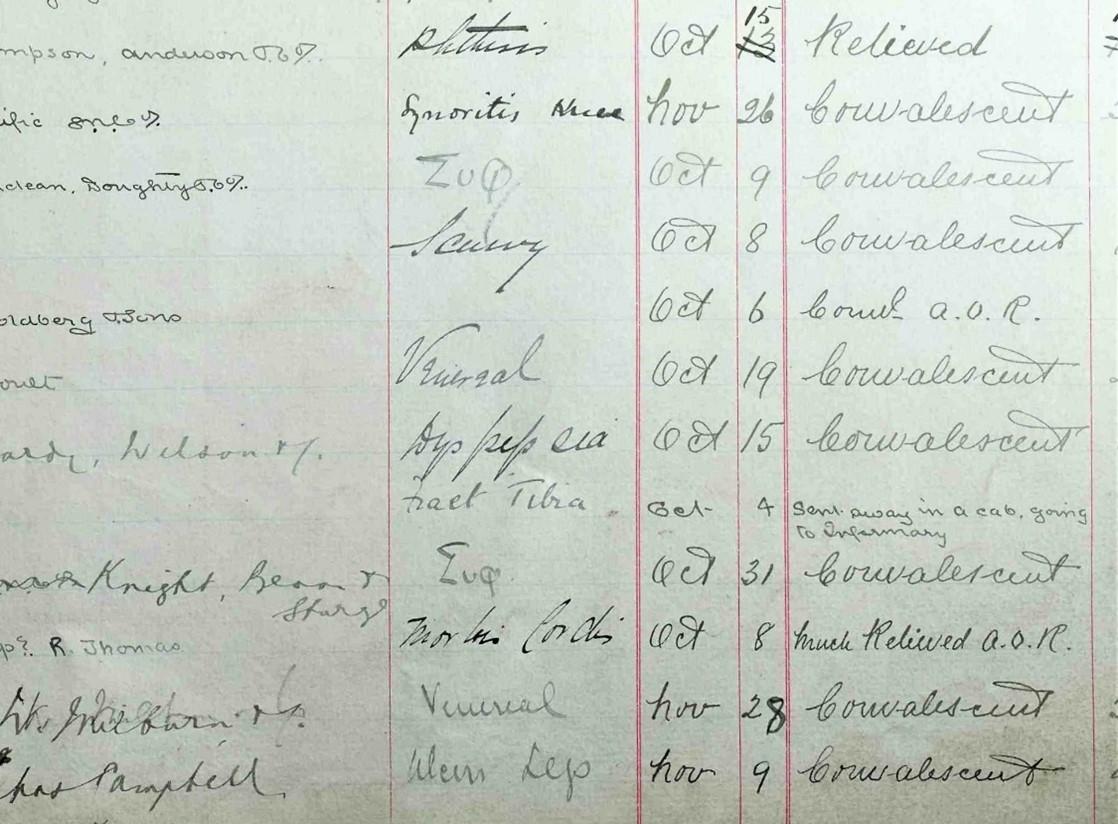 mpson, anderson & Co. Phthisis Oct 15 13 Relieved
ific S.N.Co. Synovitis Knee Nov 26 Convalescent
clean, Doughty & Co. Συφ Oct 9 Convalescent
Scurvy Oct 8 Convalescent
oldberg & Sons Oct 6 Convt. a.O.R.
Venereal Oct 19 Convalescent
ardy, Wilson & Dyspepsia Oct 15 Convalescent
Fract Tibia Oct 4 Sent away in a cab, going
to Infirmary
Knight, Bevan & Συφ Oct 31 Convalescent
Sturge
R. Thomas Morbis Cordis Oct 8 Much Relieved a.O.R.
Milburn & Venereal Nov 28 Convalescent
Chas Campbell Ulcers Legs Nov 9 Convalescent